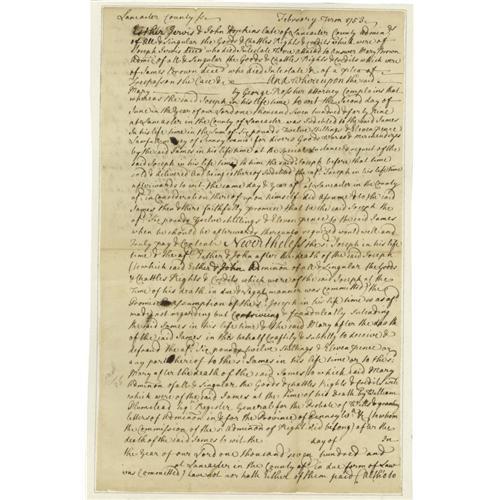 Lancaster County ss. February Term 1753.
Esther Jervis & John Hopkins late of Lancaster County
of all & Singular the Goods & Chattles Rights & Credits which were of
Joseph Jervis Deced who died Intestate were attached to answer Mary Brown
Admx of all & Singular the Goods & Chattles Rights & Credits which were
of James Brown deced who died Intestate &c of a plea of
Trespass on the Case &c And Whereupon the said
Mary by George Ross her attorney Complains that
whereas the said Joseph in his life time to wit the Second day of
June in the Year of our Lord one thousand Seven hundred & forty
at Lancaster in the County of Lancaster was Indebted to the said James
in his life time in the Sum of Six pounds Twelve Shillings & Eleven pence
Lawful money of Pennsylvania for divers Goods Wares & merchandizes
by the said James in his life time at the special Instance & request of the
said Joseph in his life time to him the said Joseph before that time
sold & delivered And being so thereof Indebted the afd. Joseph in his life time
afterwards to wit the same day & Year afd. at Lancaster in the County
afd. in Consideration thereof upon himself did assume & to the said
James then & there faithfully promised that he the said Joseph the
afd. Six pounds Twelve Shillings & Eleven pence to the said James
when he should be afterwards thereunto required would well and
truly pay & Content Nevertheless the sd Joseph in his life
time & the afd. Esther & John after the death of the said Joseph
(to which said Esther & John Admon of all & Singular the Goods
& Chattles Rights & Credits which were of the said Joseph at the
Time of his death in due & Legal manner was Committed) the
promise & assumption of the sd. Joseph in his life time so as afd
made not regarding but Contriving & fraudulently Intending
the said James in his life time & the said Mary after the death
of the said James in this behalf Craftily & subtilly to deceive &
defraud the afd. Six pounds Twelve Shillings & Eleven pence or
any part thereof to the sd James in his life time or to the sd
Mary after the death of the said James (to which said Mary
Admon of all & Singular the Goods & Chattles Rights & Credits
which were of the said James at the Time of his death by William
Plumstead Esq Register General for the Probate of Wills & granting
Letters of Admon in & for the Province of Pensylva &c (to whom
the Commission of the sd Admon of Right did belong) after the
death of the said James to wit the day of In
the Year of our Lord one thousand seven hundred and
at Lancaster in the County afd. in due form of Law
was Committed) have not nor hath Either of them paid (Altho to